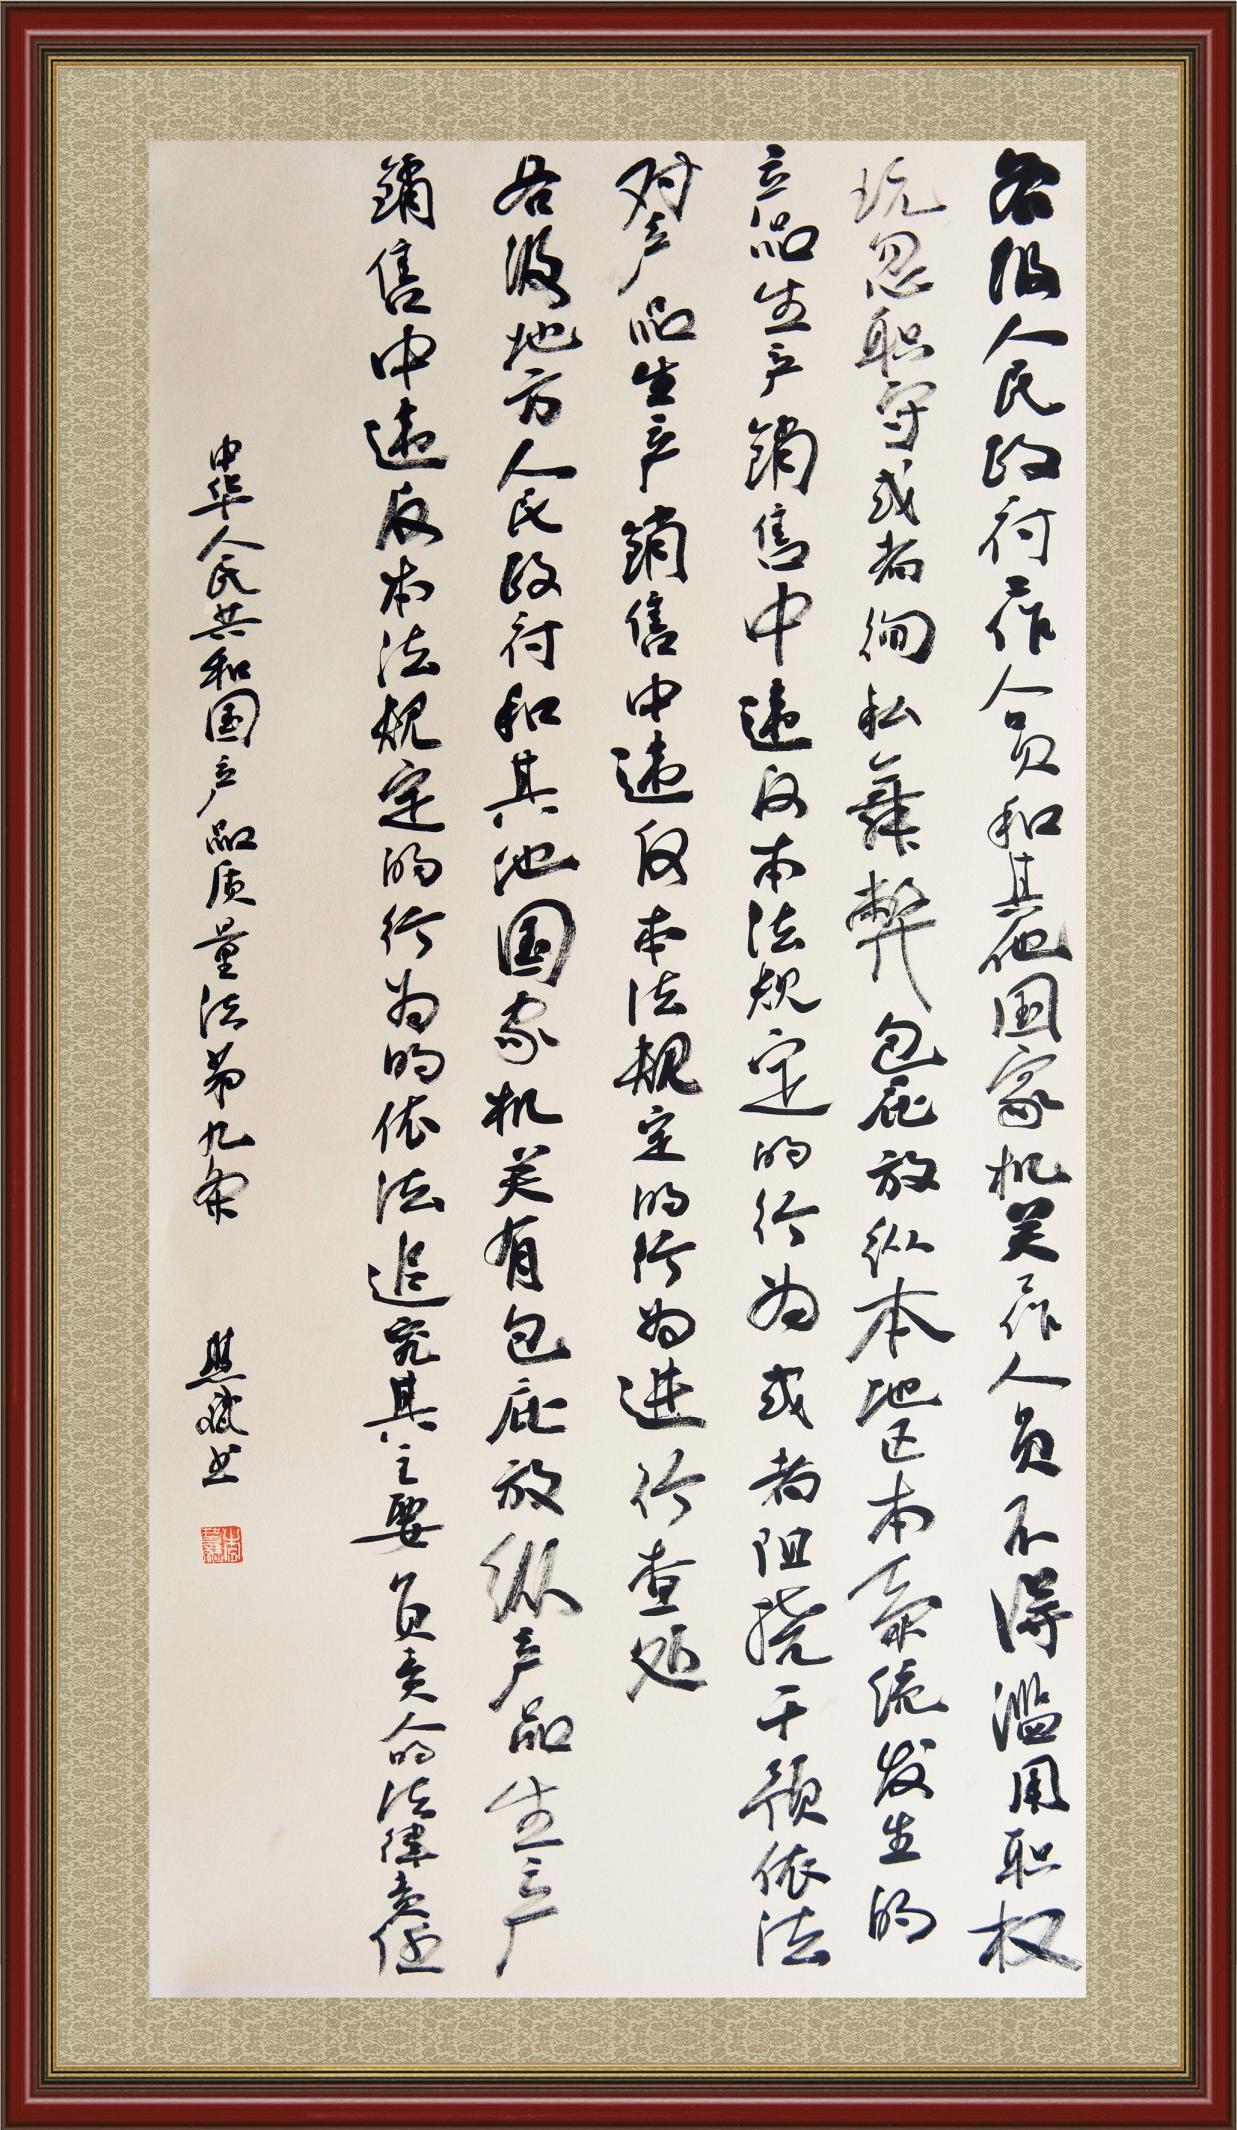 各级人民政府工作人员和其他国家机关工作人员不得滥用职权
玩忽职守或者徇私舞弊包庇放纵本地区本系统发生的
产品生产销售中违反本法规定的行为或者阻挠干预依法
对产品生产销售中违反本法规定的行为进行查处
各级地方人民政府和其他国家机关有包庇放纵产品生产
销售中违反本法规定的行为的依法追究其主要负责人的法律责任
中华人民共和国产品质量法第九条
书